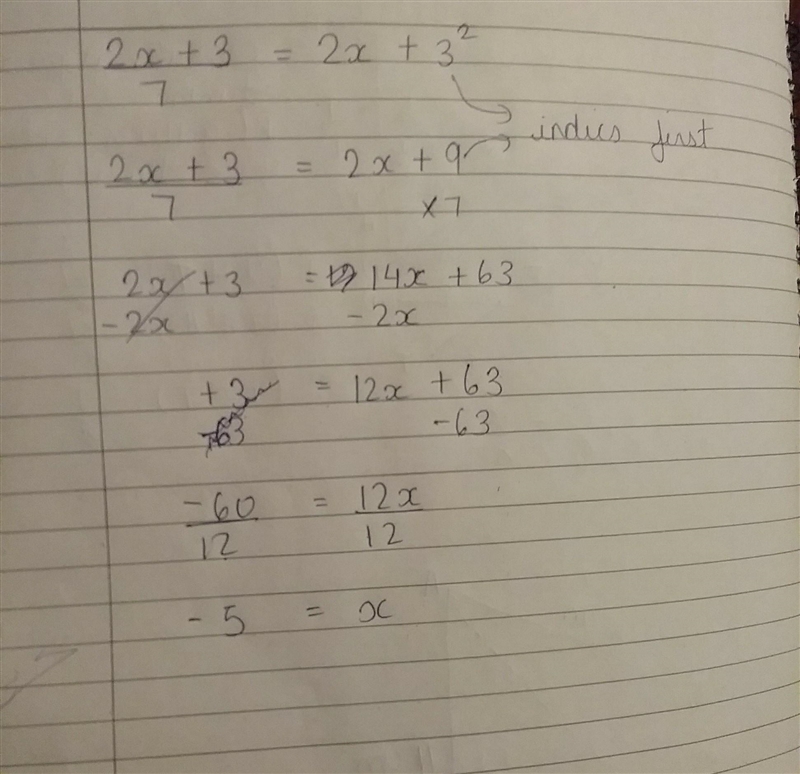 2x + 3 = 2x + 3²
7
indics first
2x + 3 = 2x + 9
7 ×7
2x + 3 = 14x + 63
-2x -2x
+3 = 12x + 63
-63 -63
-60 = 12x
12 12
-5 = x